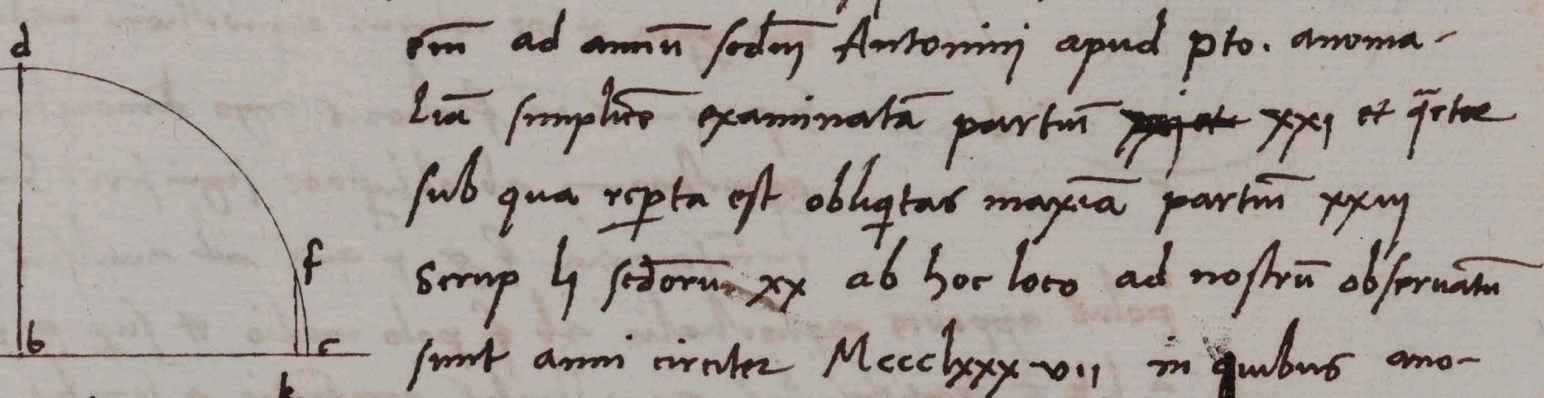 d
em̄ ad annū scd̄m Antonini apud pto. anoma-
liā simplicē examinatā partiū xxi et qrta͞e
sub qua rep̱ta est obliq̱tas maxīa partiū xxiii
f
Scrup lj scd̄orum xx ab hoc loco ad nostrū observatū
b c
sunt anni circiter Mccclxxxvii in quibus ano-
k